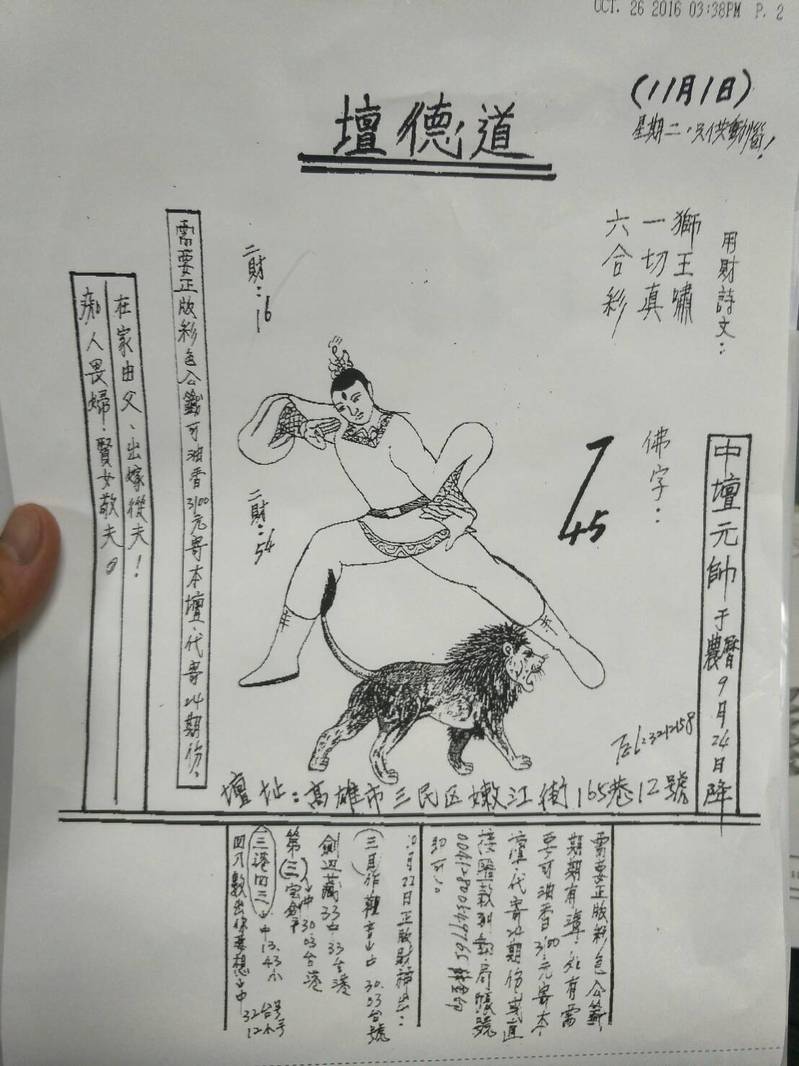 OCT. 26 2016 03:38PM P. 2
(11月1日)
星期二,只供動腦!
壇德道
用財詩文:
獅王嘯
一切真
六合彩
佛字:
7
45
中壇元帥于農曆9月24日降
二財:16
二財:54
需要正版彩色公籤可油香3100元寄本壇.代寄24期份.
在家由父、出嫁從夫!
痴人畏婦.賢女敬夫。
Tel:3212158
壇址:高雄市三民区嫩江街165巷12號
需要正版彩色公籤
期期有準.如有需
要可油香3100元寄本
壇.代寄24期份或直
接匯款到郵局帳號
即可。
10月22日正版財神出:
三月作觀音山中 30.03台號
劍邊藏33中33台港
第三宝劍下中30.03台港
三港四三
四下數出你要想